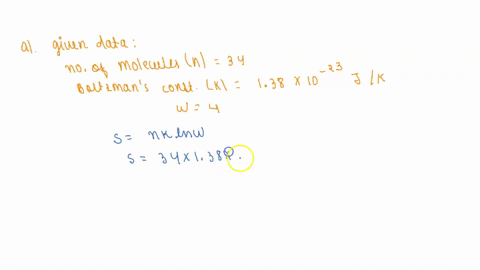 a). given data:
no. of molecules (n) = 34
Boltzman's const. (K) = 1.38 × 10⁻²³ J/K
W = 4
S = nK lnW
S = 34 × 1.38